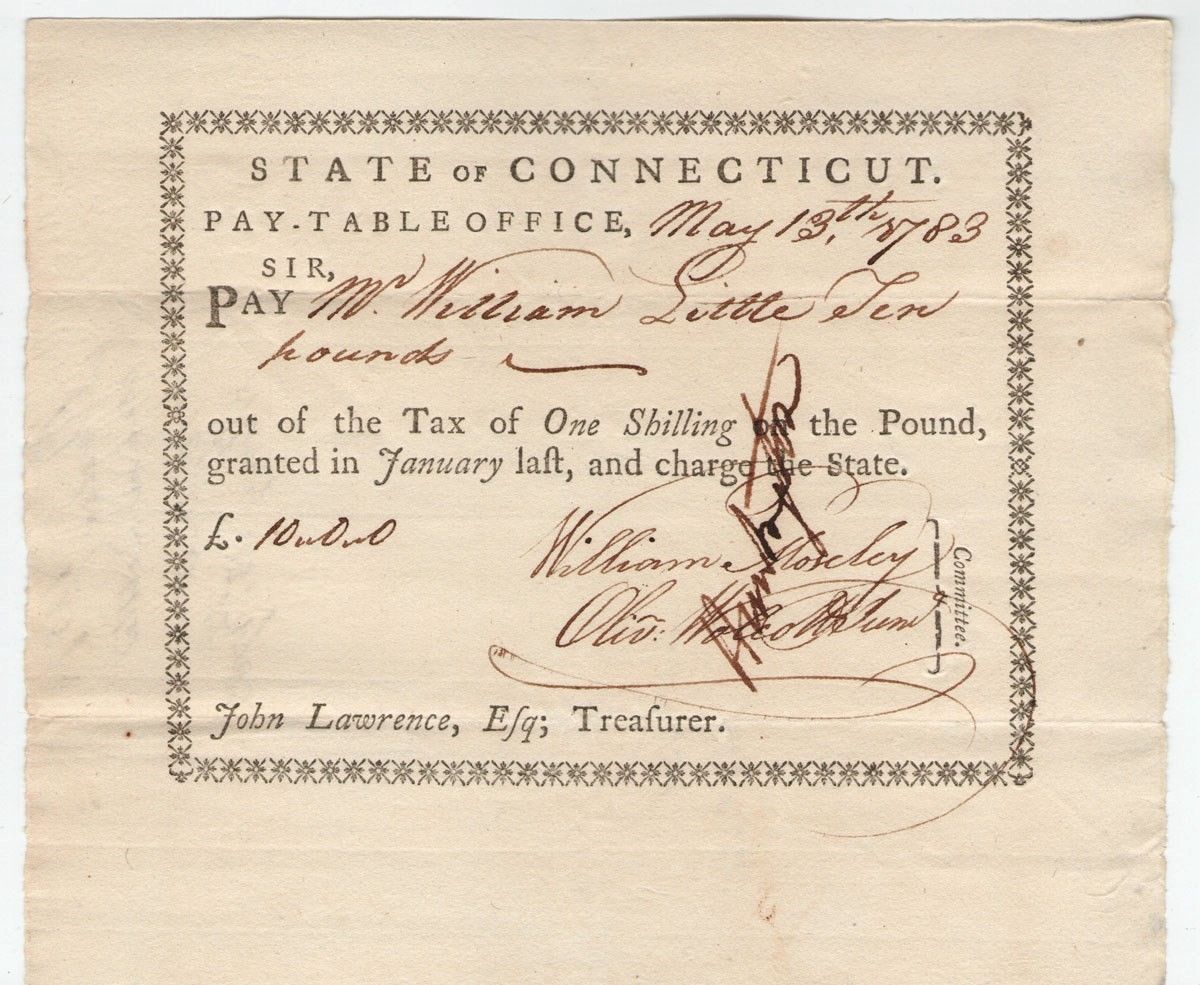 STATE OF CONNECTICUT.
PAY-TABLE OFFICE, May 13.th 1783
SIR,
PAY Mr. William Little Ten
pounds
out of the Tax of One Shilling on the Pound,
granted in January laſt, and charge the State.
£. 10,,0,,0
William Moseley
Oliv: Wolcott Jun
Committee.
John Lawrence, Eſq; Treaſurer.